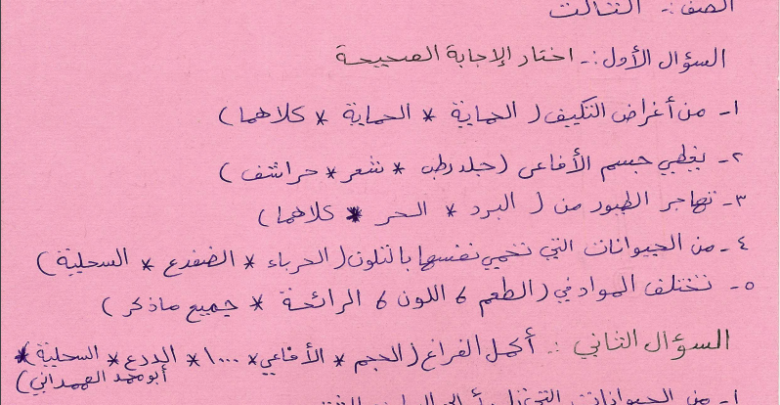 الصف :- الثالث
السؤال الأول :- اختار الإجابة الصحيحة
١- من أغراض التكييف ( الحماية * الحماية * كلاهما )
٢- يغطي جسم الأفاعى ( جلد رطب * شعر * حراشف )
٣- تهاجر الطيور من ( البرد * الحر * كلاهما )
٤- من الحيوانات التي تحمي نفسها بالتلون ( الحرباء * الضفدع * السحلية )
٥- تختلف المواد في ( الطعم 6 اللون 6 الرائحة * جميع ماذكر )
السؤال الثاني :- أكمل الفراغ ( الحجم * الأفاعي * ١٠٠٠ * الدرع * السحلية *
أبو محمد الهمداني )
١- من الحيوانات التي